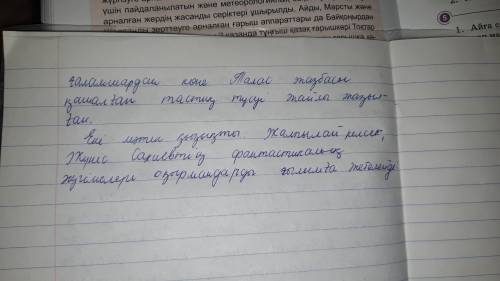 үшін пайдаланылатын және метеорологиялық
арналған жердің жасанды серіктері ұшырылды. Айды, Марсты және
зерттеуге арналған ғарыш аппараттары да Байқоңырдан
қазанда тұңғыш қазақ ғарышкері Тоқтар
5
1. Айға
ғаламшардан көне Талас жазбасы
қашалған тастың түсуі жайлы жазыл-
ған.
Екі мәтін қызықты. Жалпылай келсек,
Жүніс Сахиевтің фантастикалық
әңгімелері оқырмандарды ғылымға жетелейді